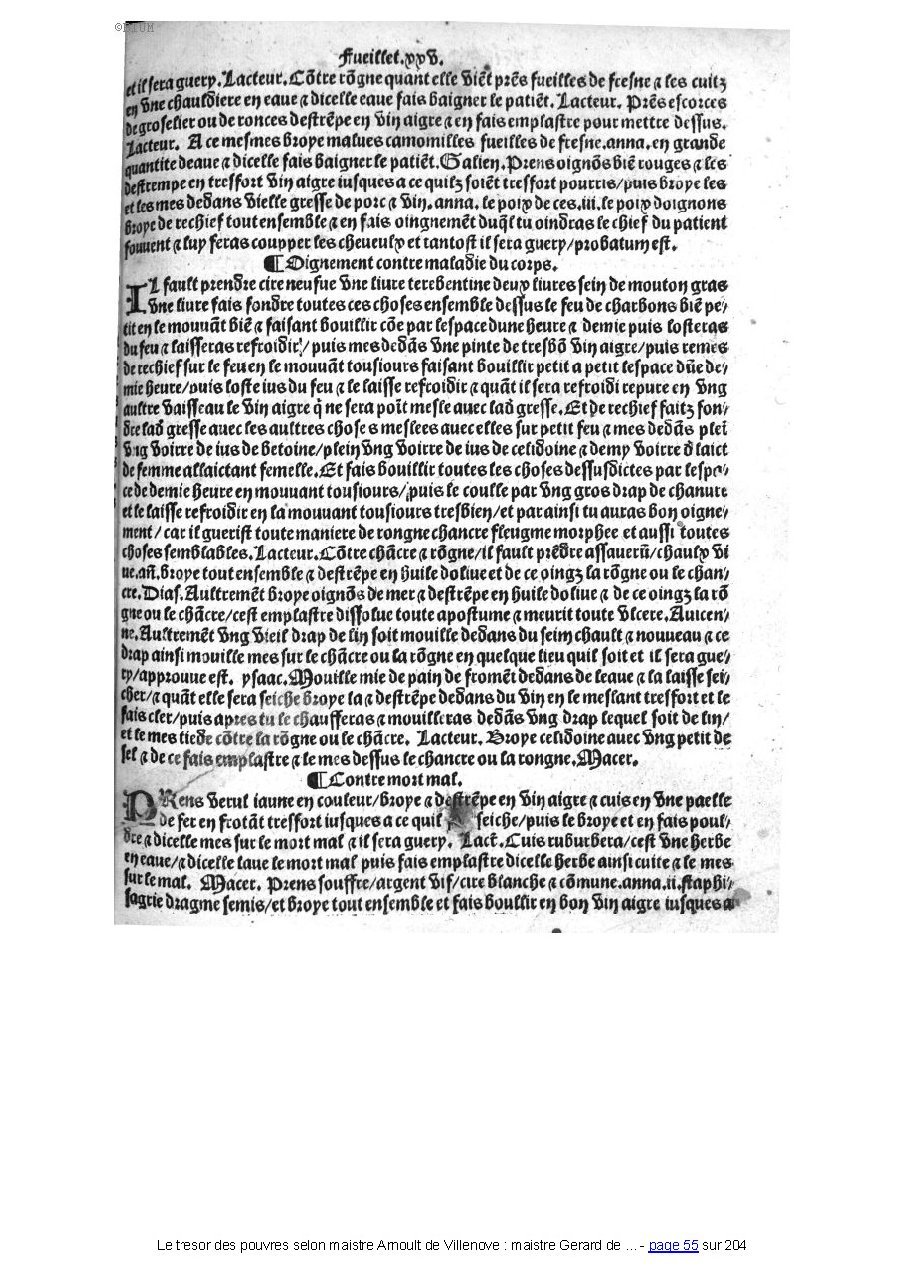 ©BIUM
Fueillet.xxv.
et il sera guery. Lacteur. Cōtre rōgne quant elle viēt prēs fueilles de fresne & les cuitz
en vne chauldiere en eaue & dicelle eaue fais baigner le patiēt. Lacteur. Prēs escorces
de groselier ou de ronces destrēpe en vin aigre & en fais emplastre pour mettre dessus.
Lacteur. A ce mesmes broye malues camomilles fueilles de fresne.anna.en grande
quantite deaue & dicelle fais baigner le patiēt. Galien. Prens oignōs biē rouges & les
destrempe en tresfort vin aigre iusques a ce quilz soiēt tresfort pourris/puis broye les
et les mes dedans vielle gresse de porc & vin.anna. le poix de ces.iii.le poix doignons
broye de rechief tout ensemble & en fais oingnemēt duq̄l tu oindras le chief du patient
souuent & luy feras coupper les cheueulx et tantost il sera guery/probatum est.
¶ Oignement contre maladie du corps.
IL fault prendre cire neufue vne liure terebentine deux liures sein de mouton gras
vne liure fais fondre toutes ces choses ensemble dessus le feu de charbons biē pe/
tit en le mouuāt biē & faisant bouillir cōe par lespace dune heure & demie puis losteras
du feu & laisseras refroidir/puis mes dedās vne pinte de tresbō vin aigre/puis remes
de rechief sur le feu en le mouuāt tousiours faisant bouillir petit a petit lespace dūe de/
mie heure/puis loste ius du feu & le laisse refroidir & quāt il sera refroidi repure en vng
aultre vaisseau le vin aigre q̄ ne sera poīt mesle auec lad gresse. Et de rechief faitz fon/
dre lad gresse auec les aultres choses meslees auec elles sur petit feu & mes dedās pleī
vng voirre de ius de betoine/plein vng voirre de ius de celidoine & demy voirre d laict
de femme allaictant femelle. Et fais bouillir toutes les choses dessusdictes par lespa/
ce de demie heure en mouuant tousiours/puis le coulle par vng gros drap de chanure
et le laisse refroidir en la mouuant tousiours tresbien/et par ainsi tu auras bon oigne/
ment/car il guerist toute maniere de rongne chancre fleugme morphee et aussi toutes
choses semblables. Lacteur. Cōtre chācre & rōgne/il fault prēdre assauerū/chaulx vi
ue.añ.broye tout ensemble & destrēpe en huile doliue et de ce oingz la rōgne ou le chan/
cre. Dias. Aultremēt broye oignōs de mer & destrēpe en huile doliue & de ce oingz la rō
gne ou le chācre/cest emplastre dissolue toute apostume & meurit toute vlcere. Auicen/
ne. Aultremēt vng vieil drap de lin soit mouille dedans du sein chault & nouueau & ce
drap ainsi mouille mes sur le chācre ou la rōgne en quelque lieu quil soit et il sera gue/
ry/approuue est. ysaac. Mouille mie de pain de fromēt dedans de leaue & la laisse sei/
cher/& quāt elle sera seiche broye la & destrēpe dedans du vin en le meslant tresfort et le
fais cler/puis apres tu le chaufferas & mouilleras dedās vng drap lequel soit de lin/
et le mes tiede cōtre la rōgne ou le chācre. Lacteur. Broye celidoine auec vng petit de
sel & de ce fais emplastre & le mes dessus le chancre ou la rongne. Macer.
¶ Contre mort mal.
PRens verul iaune en couleur/broye & destrēpe en vin aigre & cuis en vne paelle
de fer en frotāt tresfort iusques a ce quil seiche/puis le broye et en fais poul/
dre & dicelle mes sur le mort mal & il sera guery. Lact̄. Cuis ruburbera/cest vne herbe
en eaue/& dicelle laue le mort mal puis fais emplastre dicelle herbe ainsi cuite & le mes
sur le mal. Macer. Prens souffre/argent vif/cire blanche & cōmune.anna.ii.staphi/
sagrie dragme semis/et broye tout ensemble et fais boullir en bon vin aigre iusques a
Le tresor des pouvres selon maistre Arnoult de Villenove : maistre Gerard de ... - page 55 sur 204